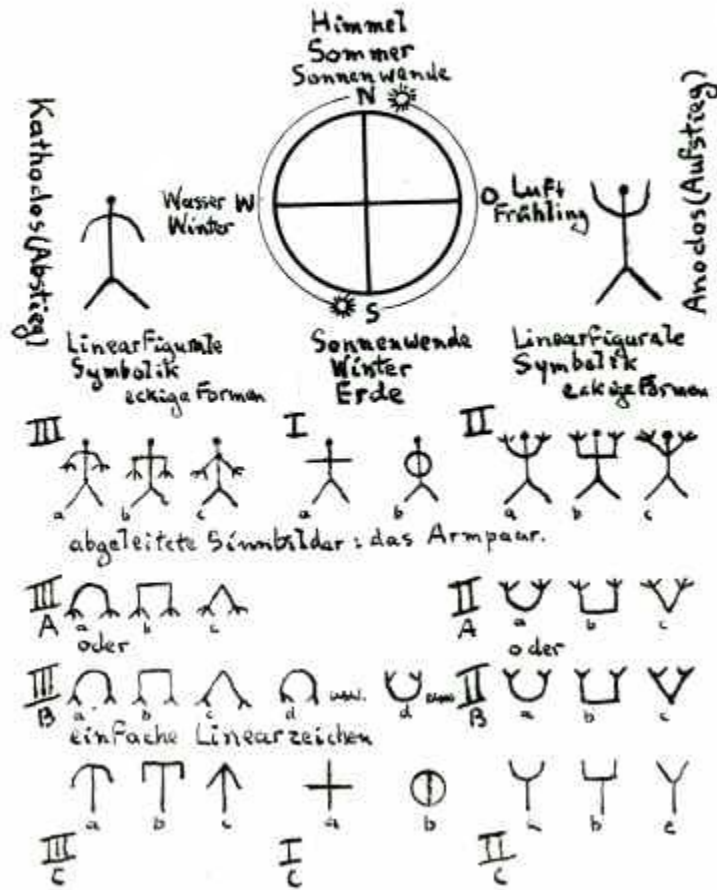 Himmel
Sommer
Sonnenwende
N
Kathodos (Abstieg)
Anodos (Aufstieg)
Wasser W
Winter
O Luft
Frühling
S
Linearfigurale
Symbolik
eckige Formen
Sonnenwende
Winter
Erde
Linearfigurale
Symbolik
eckige Formen
III I II
a b c a b a b c
abgeleitete Sinnbilder: das Armpaar.
III II
A a b c A a b c
oder oder
III II
B a b c d usw. d usw. B a b c
einfache Linearzeichen
a b c a b b
III I II
C C C